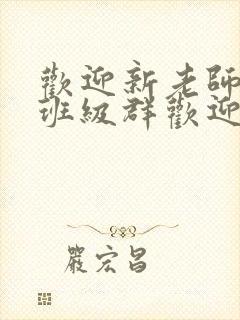 歡迎新老師
班級群歡迎
嚴宏昌